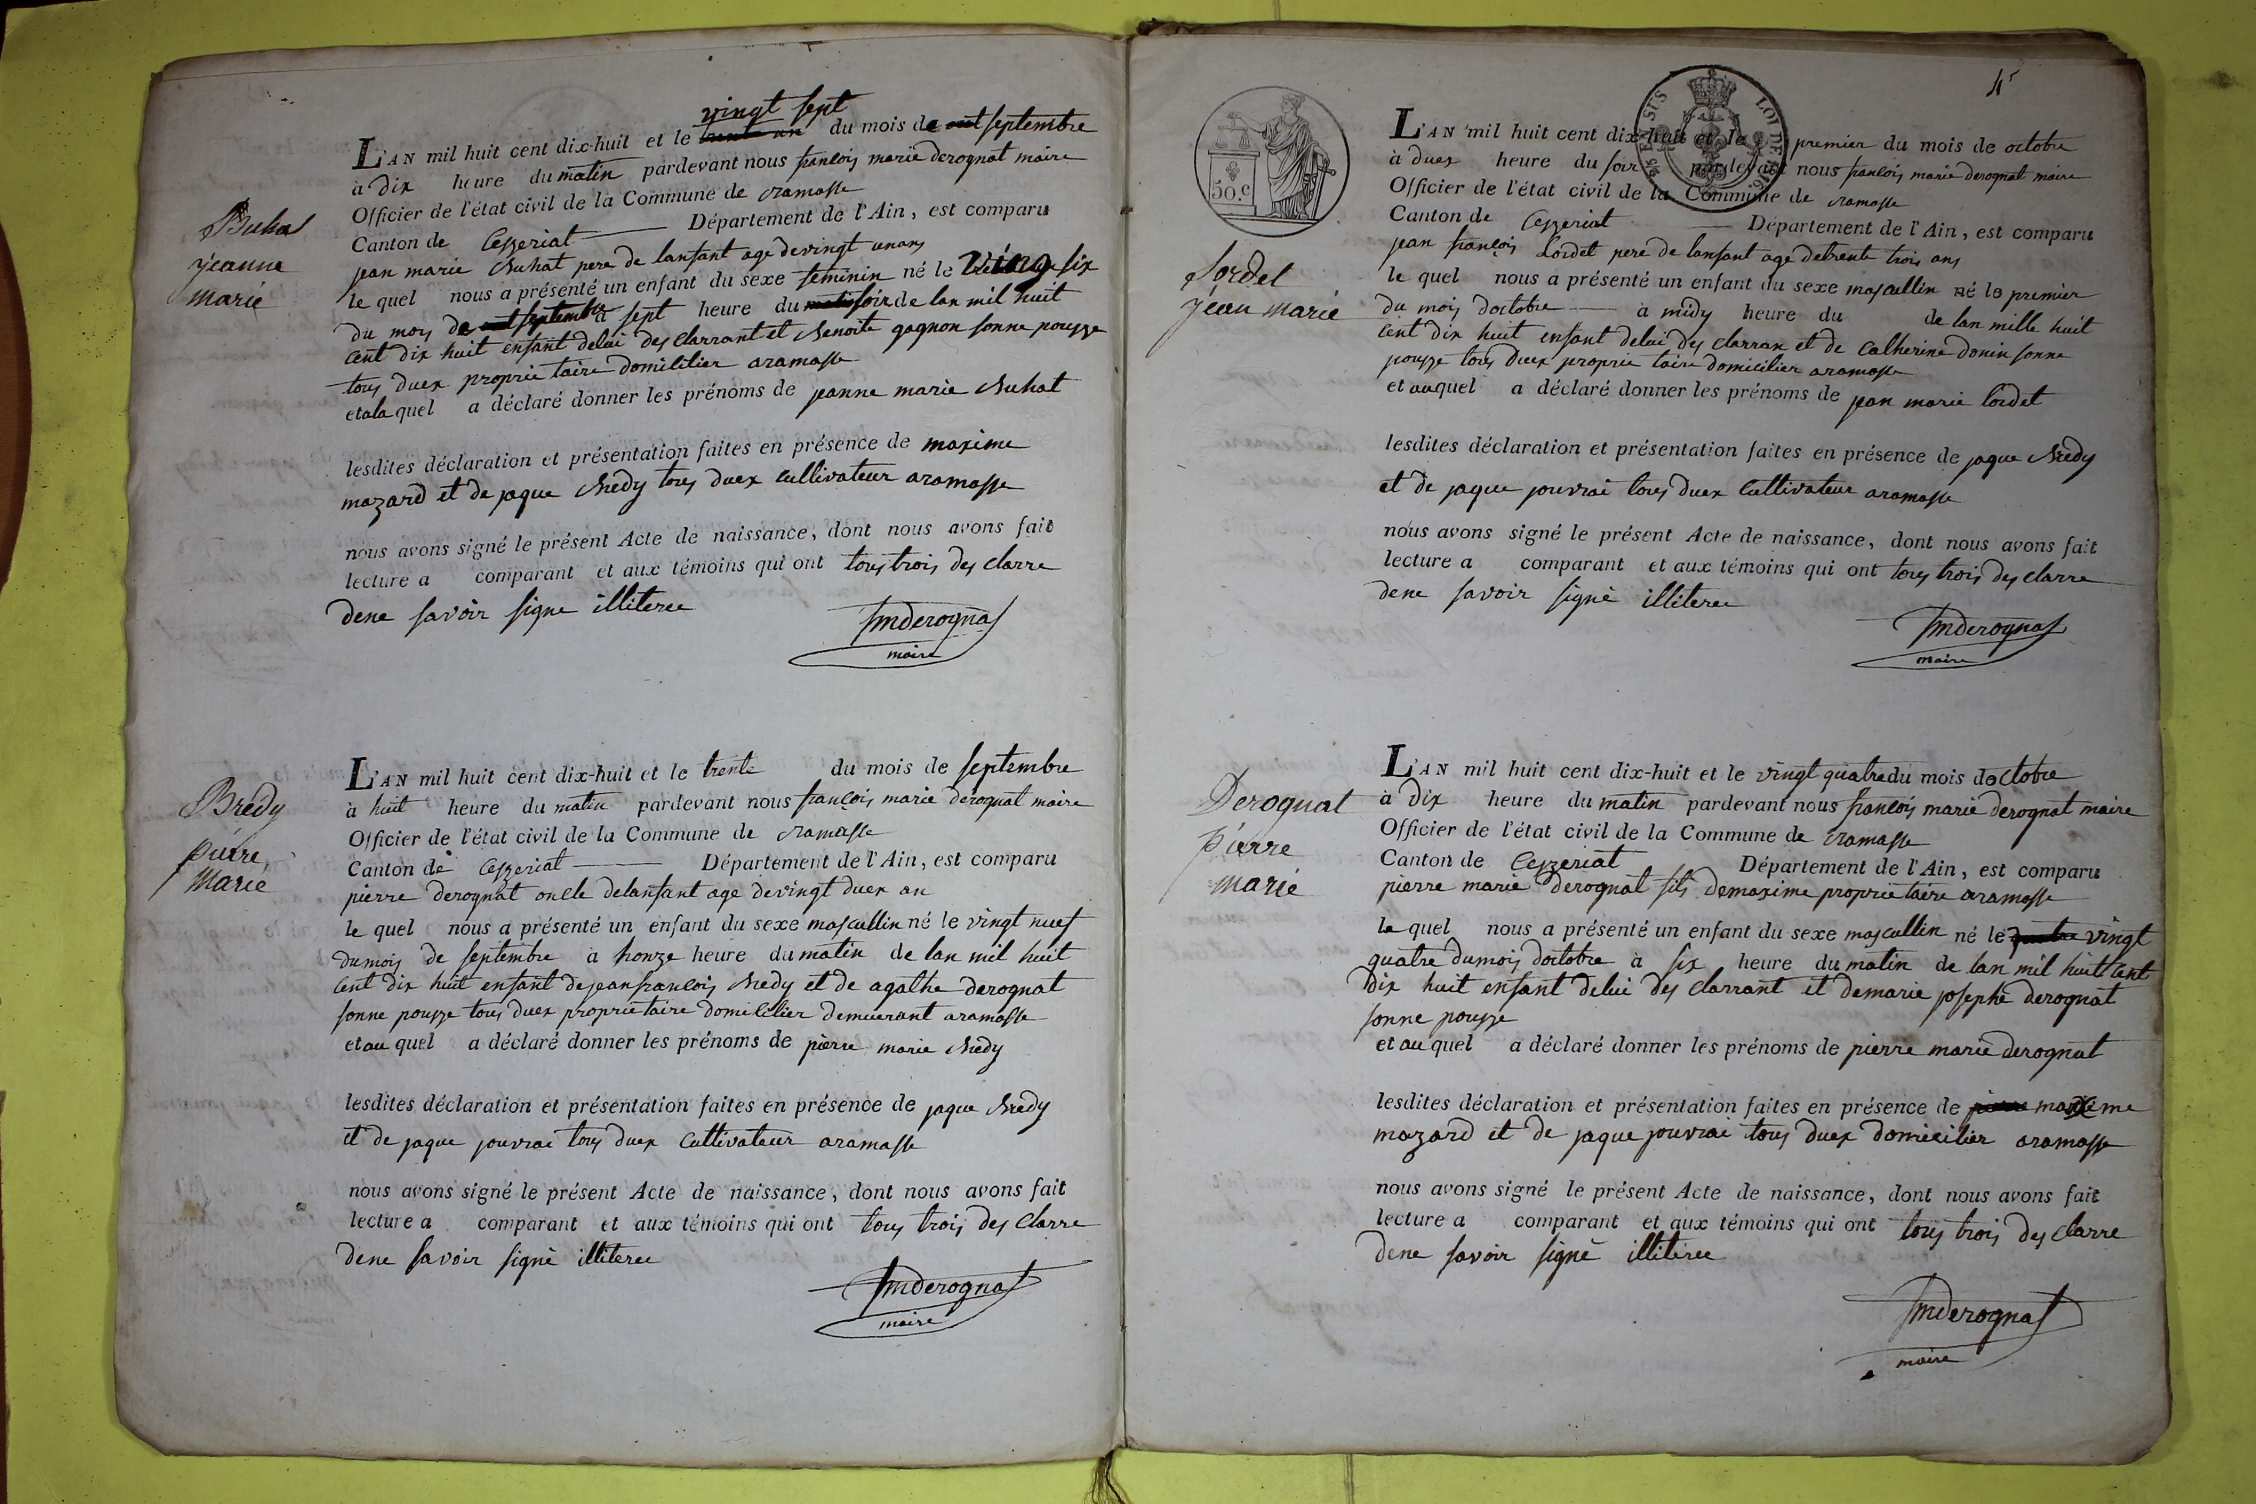 Buhat
jeanne
marie
vingt sept
L'AN mil huit cent dix-huit et le trente un du mois de out septembre
à dix heure du matin pardevant nous françois marie derognat maire
Officier de l'état civil de la Commune de ramasse
Canton de Cezzeriat Département de l'Ain, est comparu
jean marie Buhat pere de lanfant age de vingt un ans
le quel nous a présenté un enfant du sexe feminin né le vingt six
du mois de out septembre a sept heure du matin soir de lan mil huit
cent dix huit enfant delui des clarrant et Benoite gagnon sonne pouzze
tous duex proprietaire domililier aramasse
et ala quel a déclaré donner les prénoms de jeanne marie Buhat
lesdites déclaration et présentation faites en présence de maxime
mazard et de jaque Bredy tous duex cultivateur aramasse
nous avons signé le présent Acte de naissance, dont nous avons fait
lecture a comparant et aux témoins qui ont tous trois des clarre
dene savoir signe illiteree
fmderognat
maire
Bredy
pierre
marie
L'AN mil huit cent dix-huit et le trente du mois de septembre
à huit heure du matin pardevant nous françois marie derognat maire
Officier de l'état civil de la Commune de ramasse
Canton de Cezzeriat Département de l'Ain, est comparu
pierre derognat oncle delanfant age devingt duex an
le quel nous a présenté un enfant du sexe mascullin né le vingt nuef
dumois de septembre a honze heure du matin de lan mil huit
cent dix huit enfant dejeanfrancois Bredy et de agathe derognat
sonne pouzze tous duex proprietaire domicilier demuerant aramasse
et au quel a déclaré donner les prénoms de pierre marie Bredy
lesdites déclaration et présentation faites en présence de jaque Bredy
et de jaque jouvrai tous duex cultivateur aramasse
nous avons signé le présent Acte de naissance, dont nous avons fait
lecture a comparant et aux témoins qui ont tous trois des clarre
dene savoir signè illiteree
fmderognat
maire
50.c
LOI DE 1816
Lordet
jean marie
L'AN mil huit cent dix-huit et le premier du mois de octobre
à duex heure du soir pardevant nous françois marie derognat maire
Officier de l'état civil de la Commune de ramasse
Canton de Cezzeriat Département de l'Ain, est comparu
jean françois Lordet pere de lanfant age detrente trois ans
le quel nous a présenté un enfant du sexe mascullin né le premier
du mois doctobre a midy heure du de lan mille huit
cent dix huit enfant delui des clarran et de Catherine donin sonne
pouzze tous duex proprie taire domicilier aramasse
et au quel a déclaré donner les prénoms de jean marie lordet
lesdites déclaration et présentation faites en présence de jaque Bredy
et de jaque jouvrai tous duex Cultivateur aramasse
nous avons signé le présent Acte de naissance, dont nous avons fait
lecture a comparant et aux témoins qui ont tous trois des clarre
dene savoir signè illiteree
fmderognat
maire
Derognat
pierre
marie
L'AN mil huit cent dix-huit et le vingt quatre du mois doctobre
à dix heure du matin pardevant nous françois marie derognat maire
Officier de l'état civil de la Commune de ramasse
Canton de Cezzeriat Département de l'Ain, est comparu
pierre marie derognat fils demaxime proprietaire aramasse
le quel nous a présenté un enfant du sexe mascullin né le quatre vingt
quatre dumois doctobre à six heure du matin de lan mil huit cent
dix huit enfant delui des clarrant et demarie josephe derognat
sonne pouzze
et au quel a déclaré donner les prénoms de pierre marie derognat
lesdites déclaration et présentation faites en présence de pierre maxime
mazard et de jaque jouvrai tous duex domicilier aramasse
nous avons signé le présent Acte de naissance, dont nous avons fait
lecture a comparant et aux témoins qui ont tous trois des clarre
dene savoir signè illiteree
fmderognat
maire